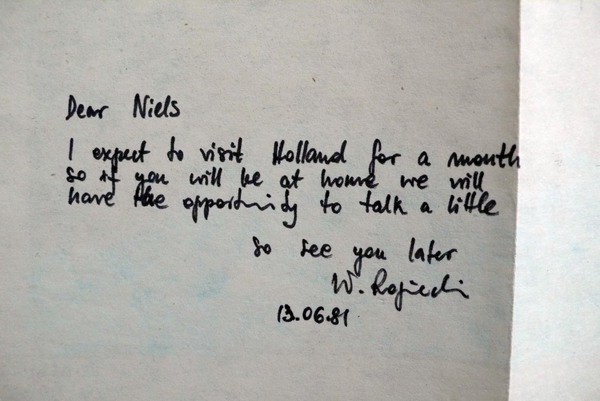 Dear Niels
I expect to visit Holland for a month
so if you will be at home we will
have the opportunity to talk a little
so see you later
W.
13.06.81